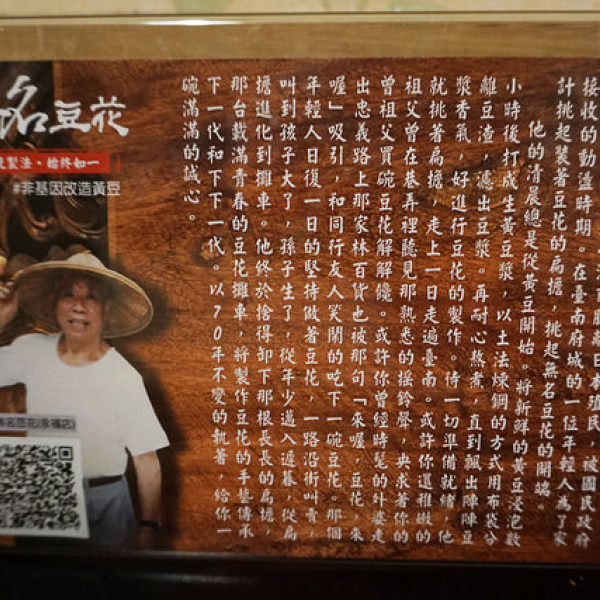 日本殖民,被國民政府
接收的動盪時期。在臺南府城的一位年輕人為了家
計挑起裝著豆花的扁擔,挑起無名豆花的開端。
他的清晨總是從黃豆開始。將新鮮的黃豆浸泡數
小時後打成生黃豆漿,以土法煉鋼的方式用布袋分
離豆渣,濾出豆漿。再耐心熬煮,直到飄出陣陣豆
漿香氣,好進行豆花的製作。待一切準備就緒,他
就挑著扁擔,走上一日走遍臺南。或許你還稚嫩的
祖父曾在巷弄裡聽見那熟悉的搖鈴聲,央求著你的
曾祖父買碗豆花解解饞。或許你曾經時髦的外婆走
出忠義路上那家林百貨也被那句「來喔,豆花 來
喔」吸引,和同行友人笑鬧的吃下一碗豆花。那個
年輕人日復一日的堅持做著豆花,一路沿街叫賣,
叫到孩子大了,孫子生了,從年少邁入遲暮,從扁
擔進化到攤車。他終於捨得卸下那根長長的扁擔,
那台載滿青春的豆花攤車,將製作豆花的手藝傳承
下一代和下下一代。以70年不變的執著,給你一
碗滿滿的誠心。
名豆花
製法·始終如一
#非基因改造黃豆
無名豆花(永福店)